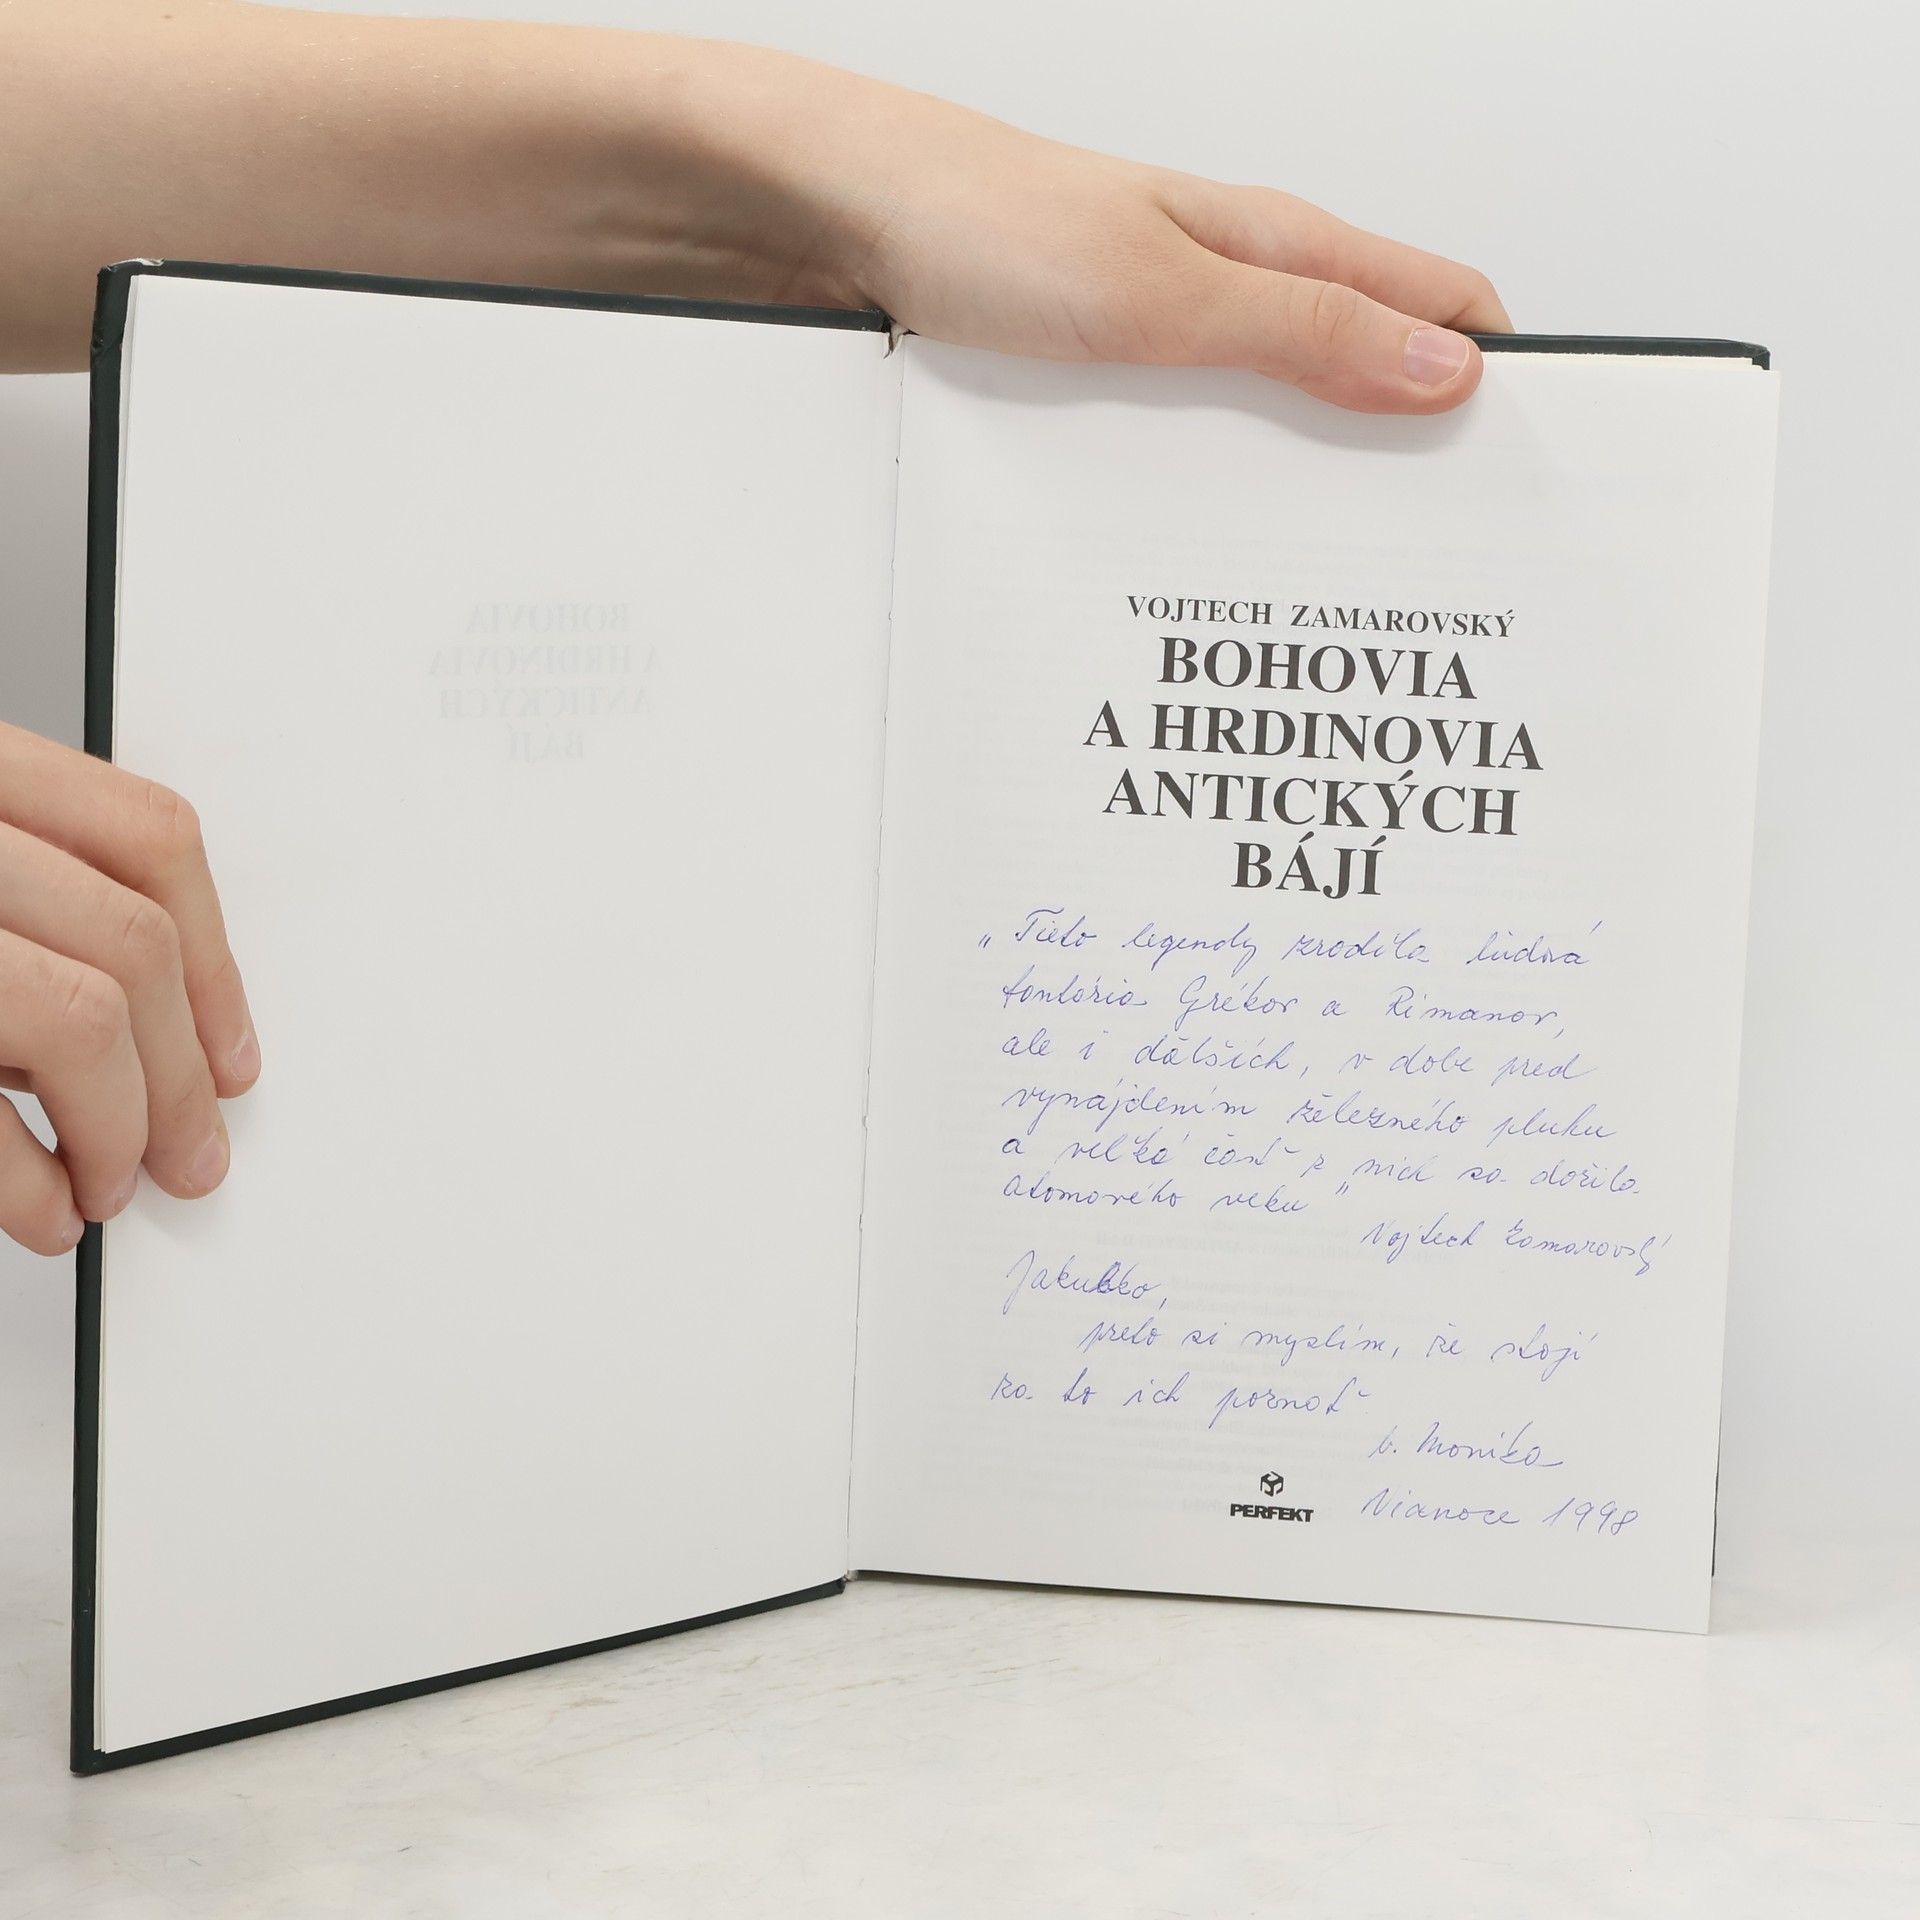 BOHOVIA
A HRDINOVIA
ANTICKÝCH
BÁJÍ
VOJTECH ZAMAROVSKÝ
BOHOVIA
A HRDINOVIA
ANTICKÝCH
BÁJÍ
„Tieto legendy zrodila ľudová
fantázia Grékov a Rimanov,
ale i ďalších, v dobe pred
vynájdením železného pluhu
a veľká časť z nich sa dožila
atomového veku"
Vojtech Zamarovský
Jakubko,
preto si myslím, že stojí
za to ich poznať
Monika
Vianoce 1998
PERFEKT